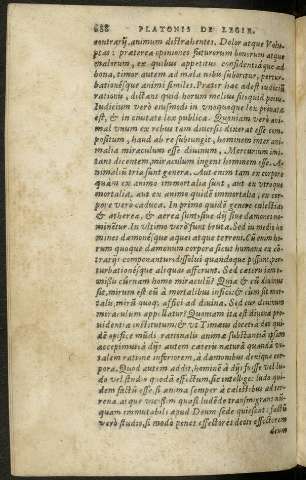 688 PLATONIS DE LEGIB.
contrarij, animum distrahentes. Dolor atque Volu-
ptas: præterea opiniones futurorum bonorum atque
malorum, ex quibus appetitus confidentiáque ad
bona, timor autem ad mala nobis suboritur, pertur-
bationésque animi similes. Præter hæc adest iudiciũ
rationis, dictans quid horum melius sit, quid peius.
Iudicium verò eiusmodi in vnoquoque lex priuata
est, & in ciuitate lex publica. Quoniam verò ani-
mal vnum ex rebus tam diuersis dixerat esse com-
positum, haud ab re subiungit, hominem inter ani-
malia miraculum esse diuinum, Mercurium imi-
tans dicentem, miraculum ingens hominem esse. A-
nimaliũ tria sunt genera. Aut enim tam ex corpore
quàm ex animo immortalia sunt, aut ex vtroque
mortalia, aut ex animo quidẽ immortalia, ex cor-
pore verò caduca. In primo quidẽ genere cælestia
& ætherea, & aerea sunt: siue dij siue dæmones no-
minẽtur. In vltimo verò sunt bruta. Sed in medio ho
mines
quoque dæmonum corpora sicut humana ex cõ-
trarijs componantur: dissolui quandoque possint, per-
turbationésque aliquas afferunt. Sed cæteris
miraculũ? Quia & cũ diuinus
sit, mirum est eũ à mortalibus infici: & cùm sit mor-
talis, mirũ quoq; affici ad diuina. Sed cur diuinum
miraculum appellatur? Quoniam ita est diuina pro-
uidentia institutum: & vt Timæus docet à deo qui-
dẽ opifice mũdi rationalis animæ substantiã ipsam
accepimus: à dijs autem cæteris
talem ratione inferiorem, à dæmonibus denique cor-
pora. Quod autem addit, hominẽ à dijs fuisse vel lu-
do vel studio quodã effectum, sic intellige: ludo qui-
dem factũ esse, si anima semper à cælestibus ad ter-
rena, atque vicissim quasi ludẽdo transmigrans nũ-
quam immutabilis apud Deum sede quiescat: factũ
verò studio, si modo penes effectores deos effectorem
deum